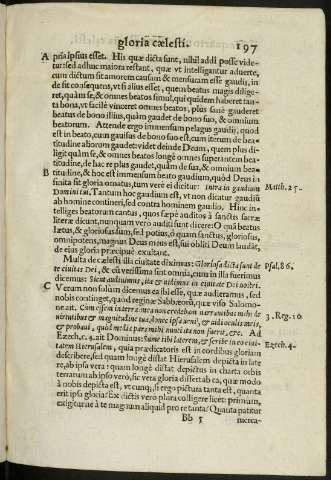 gloria cælesti. 197
A pria ipsius esset. His quæ dicta sunt, nihil addi posse vide-
tur: sed adhuc maiora restant, quæ vt intelligantur aduerte,
cum dictum sit amorem causam & mensuram esse gaudij, in-
de sit consequens, vt si alius esset, quem beatus magis dilige-
ret, quàm se, & omnes beatos simul, qui quidem haberet tan-
ta bona, vt facilè vinceret omnes beatos; plùs sanè gauderet
beatus de bono illius, quàm gaudet de bono suo, & omnium
beatorum. Attende ergo immensum pelagus gaudij, quod
est in beato, cum gauisus de bono suo est, cum iterum de bea-
titudine aliorum gaudet: videt deinde Deum, quem plus di-
ligit quàm se, & omnes beatos longè omnes superantem bea-
titudine, de hac re plus gaudet, quàm de sua, & omnium bea-
B titudine, & hoc est immensum beato gaudium, quòd Deus in
finita sit gloria ornatus, tum verè ei dicitur: Intra in gaudium Matth. 25.
Domini tui. Tantum hoc gaudium est, vt non dicatur gaudiũ
ab homine contineri, sed contra hominem gaudio. Hinc in-
telliges beatorum cantus, quos sæpè auditos à sanctis sacræ
literæ dicunt, nunquam vero audita sunt dicere: O quã beatus
lætus, & gloriosus sum, sed potius, ô quam sanctus, gloriosus,
omnipotens, magnus Deus meus est, sui obliti Deum laudãt,
de eius gloria præcipuè exultant.
Multa de cælesti illa ciuitate diximus: Gloriosa dicta sunt de Psal. 86.
te ciuitas Dei, & cũ verissima sint omnia, cum in illa fuerimus
dicemus: Sicut audiuimus, ita & vidimus in ciuitate Dei nostri.
C Verum non solùm dicemus ea ibi esse, quæ audieramus, sed
nobis continget, quod reginæ Sabbæorũ, quæ viso Salomo-
ne ait. Cum essem in terra mea non credebam narrantibus mihi de
virtutibus & magnitudine tua, donec ipsa veni, & vidi oculis meis, 3. Reg. 10
& probaui, quòd media pars mihi nuntiata non fuerit, &c. Ad
Ezech. c. 4. ait Dominus: Sume tibi laterem, & scribe in eo ciui- Ezech. 4.
tatem Hierusalem, quia prædicatoris est in cordibus gloriam
describere, sed quam longè distat Hierusalem depicta in late
re, ab ipsa vera: quam longè distat depictus in charta orbis
terrarum ab ipso verò, sic vera gloria distet ab ea, quæ modo
à nobis depicta est, vt cunq;, si ergo pictura tanta est, quanta
erit ipsa gloria? Ex dictis verò plura colligere licet: primùm,
exigitur ne à te magnum aliquid pro re tanta? Quanta patitur
Bb 5 merca-